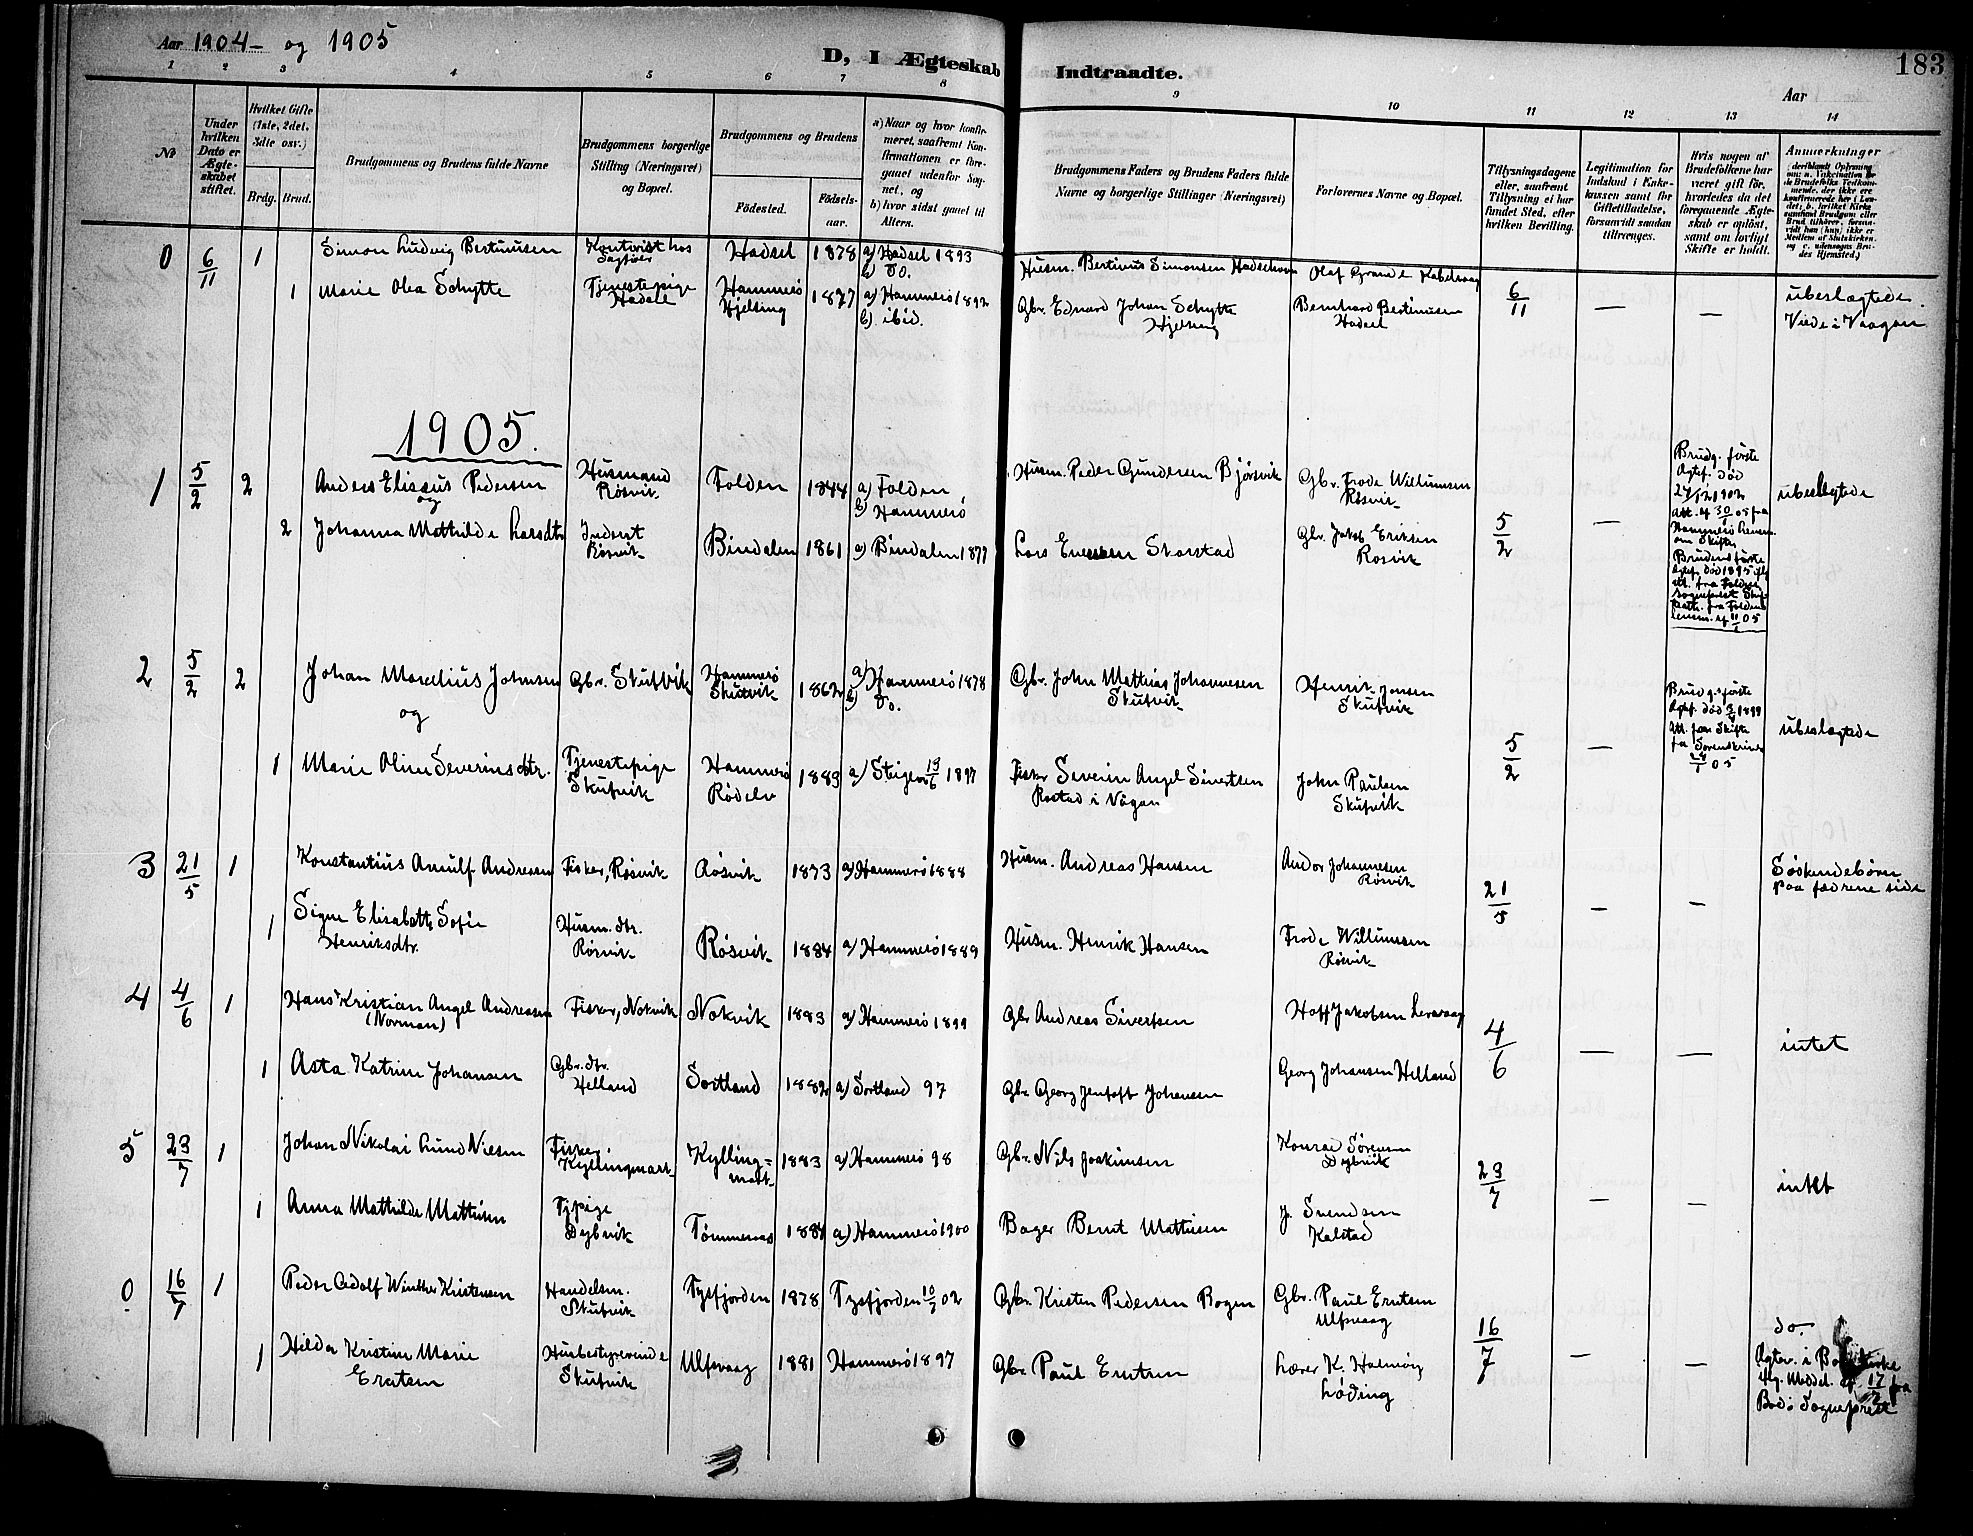 Aar 1904- og 1905
D, I Ægteskab Indtraadte.
183
Aar
1 2 3 4 5 6 7 8 9 10 11 12 13 14
No
Under hvilken Dato er Ægteskabet stiftet.
Hvilket Gifte (1ste, 2det, 3die osv.)
Brdg. Brud.
Brudgommens og Brudens fulde Navne
Brudgommens borgerlige Stilling (Næringsvei) og Bopæl.
Brudgommens og Brudens
Fødested.
Fødselsaar.
a) Naar og hvor konfirmeret, saafremt Konfirmationen er foregaaet udenfor Sognet, og
b) hvor sidst gaaet til Alters.
Brudgommens Faders og Brudens Faders fulde Navne og borgerlige Stillinger (Næringsvei)
Forlovernes Navne og Bopæl.
Tillysningsdagene eller, saafremt Tillysning ei har fundet Sted, efter hvilken Bevilling.
Legitimation for Indskud i Enkekassen samt for Giftetilladelse, forsaavidt saadan tiltrænges.
Hvis nogen af Brudefolkene har været gift før, hvorledes da det foregaaende Ægteskab er opløst, samt om lovligt Skifte er holdt.
Anmærkninger
0 6/11 1 Simon Ludvig Bertinusen Kontorist hos Sagfører Hadsel 1878 a) Hadsel 1893 b) Do. Husm. Bertinus Simonsen Olaf Grande Kabelvaag
1 Marie Olea Schytte Tjenestepige Hammerø Hjelsing 1877 a) Hammerø 1892 b) ibid. Gbr. Edvard Johan Schytte Bernhard Bertinusen Hadsel 6/11 — — ubeslægtede. Viede i Vaagan
1905.
1 5/2 2 Anders Eliseus Pedersen og Husmand Røsvik Folden 1844 a) Folden b) Hammerø Husm. Peder Gundersen Bjørsvik Gbr. Frode Willumsen Røsvik
2 Johanna Mathilde Larsdtr Inderst Røsvik Bindalen 1861 a) Bindalen 1877 Lars Skarstad Gbr. Jakob Eriksen Røsvik 5/2 — ubeslægtede
Brudg. første Ægtef. død 24/12 1902 Att. af 30/1 05 fra Hammerø Lensm. om Skifte
Brudens første Ægtef. død 1895 att. fra Foldens sogneprest Skifteatt. fra Foldens Lensm. af 11/1 05
2 5/2 2 Johan Marelius Johnsen og Gbr. Skutvik Hammerø Skutvik 1862 a) Hammerø 1878 b) Do. Gbr. John Mathias Johannesen Skutvik Henrik Jensen Skutvik
1 Marie Oline Severinsdtr. Tjenestepige Skutvik Hammerø 1883 a) Steigen 13/6 1897 Fisker Severin Angel Sivertsen Rostad i Vågan John Paulsen Skutvik 5/2 — ubeslægtede
Brudgs første Ægtef. død 1899 Att. for Skifte fra Sorenskriver 05
3 21/5 1 Konstantius Arnulf Andreasen Fisker, Røsvik Røsvik 1873 a) Hammerø 1888 Husm. Andreas Hansen Andor Johannesen Røsvik
1 Signe Elisabeth Sofie Henriksdtr. Husm. dtr. Røsvik Røsvik 1884 a) Hammerø 1889 Husm. Henrik Hansen Frode Willumsen Røsvik 21/5 — — Søskendebørn paa fædrene side
4 4/6 1 Hans Kristian Angel Andreasen (Norman) Fisker, Nokvik Nokvik 1883 a) Hammerø 1899 Gbr Andreas Sivertsen Hoff Jakobsen
1 Asta Katrine Johansen Gbr. dtr. Helland Sortland 1882 a) Sortland 97 Gbr. Georg Jentoft Johansen Georg Johansen Helland 4/6 — — intet
5 23/7 1 Johan Nikolai Lund Nilsen Fisker. Kyllingmark Kylling=mark 1883 a) Hammerø 98 Gbr. Nils Joakimsen Konrad Sørensen Dybvik
1 Anna Mathilde Mathisen Tjpige Dybvik Tømmeraas 1884 a) Hammerø 1900 Bager Bernt Mathisen J. Svendsen Kalstad 23/7 — — intet
0 16/7 1 Peder Adolf Winther Kristensen Handelsm. Skutvik Tysfjorden 1878 Tysfjorden 02 Gbr. Kristen Pedersen Bogen Gbr. Paul Erntsen Ulfsvaag
1 Hilda Kristine Marie Erntsen Husbestyrerinde Skutvik Ulfsvaag 1881 Hammerø 1897 Gbr. Paul Erntsen Lærer K. Løding 16/7 — — do. Ægtev. i Bodø Kirke Flg. Meddel. af 17 fra Bodø Sogneprest